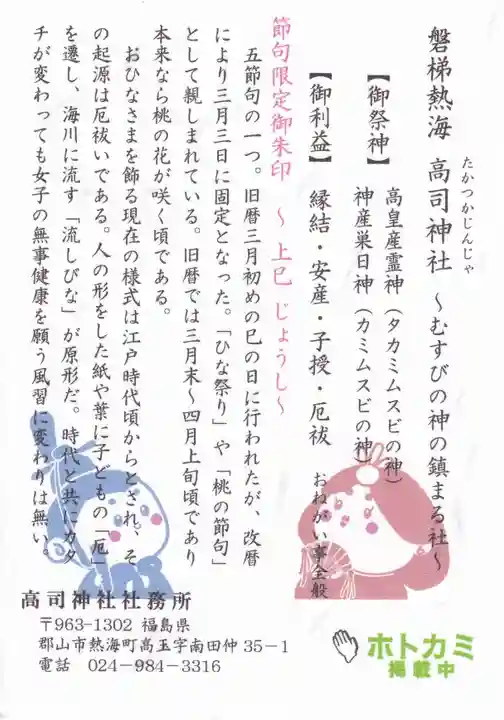 たかつかじんじゃ
磐梯熱海 高司神社 ～むすびの神の鎮まる社～
【御祭神】 高皇産霊神(タカミムスビの神)
神産巣日神(カミムスビの神)
【御利益】 縁結・安産・子授・厄祓 おねがい事全般
節句限定御朱印 ～ 上巳 じょうし～
五節句の一つ。旧暦三月初めの巳の日に行われたが、改暦
により三月三日に固定となった。「ひな祭り」や「桃の節句」
として親しまれている。旧暦では三月末～四月上旬頃であり
本来なら桃の花が咲く頃である。
おひなさまを飾る現在の様式は江戸時代頃からとされ、そ
の起源は厄祓いである。人の形をした紙や葉に子どもの「厄」
を遷し、海川に流す「流しびな」が原形だ。時代と共にカタ
チが変わっても女子の無事健康を願う風習に変わりは無い。
高司神社社務所
〒963-1302 福島県
郡山市熱海町高玉字南田仲 35－1
電話 024-984-3316
ホトカミ
掲載中